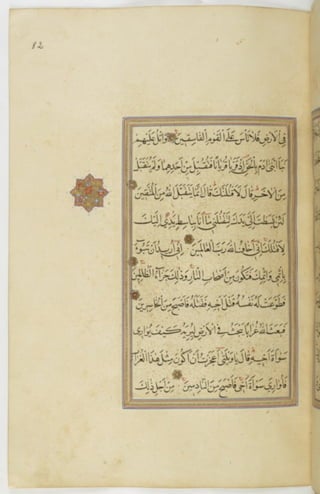 82
في الارض فلا تأس على القوم الفاسقين واتل عليهم
نبأ ابني ادم بالحق اذ قربا قربانا فتقبل من احدهما ولم يتقبل
من الاخر قال لاقتلنك قال انما يتقبل الله من المتقين
لئن بسطت الي يدك لتقتلني ما انا بباسط يدي اليك
لاقتلك اني اخاف الله رب العالمين اني اريد ان تبوء
باثمي واثمك فتكون من اصحاب النار وذلك جزاء الظالمين
فطوعت له نفسه قتل اخيه فقتله فاصبح من الخاسرين
فبعث الله غرابا يبحث في الارض ليريه كيف يواري
سوأة اخيه قال يا ويلتى اعجزت ان اكون مثل هذا الغراب
فاواري سوأة اخي فاصبح من النادمين من اجل ذلك